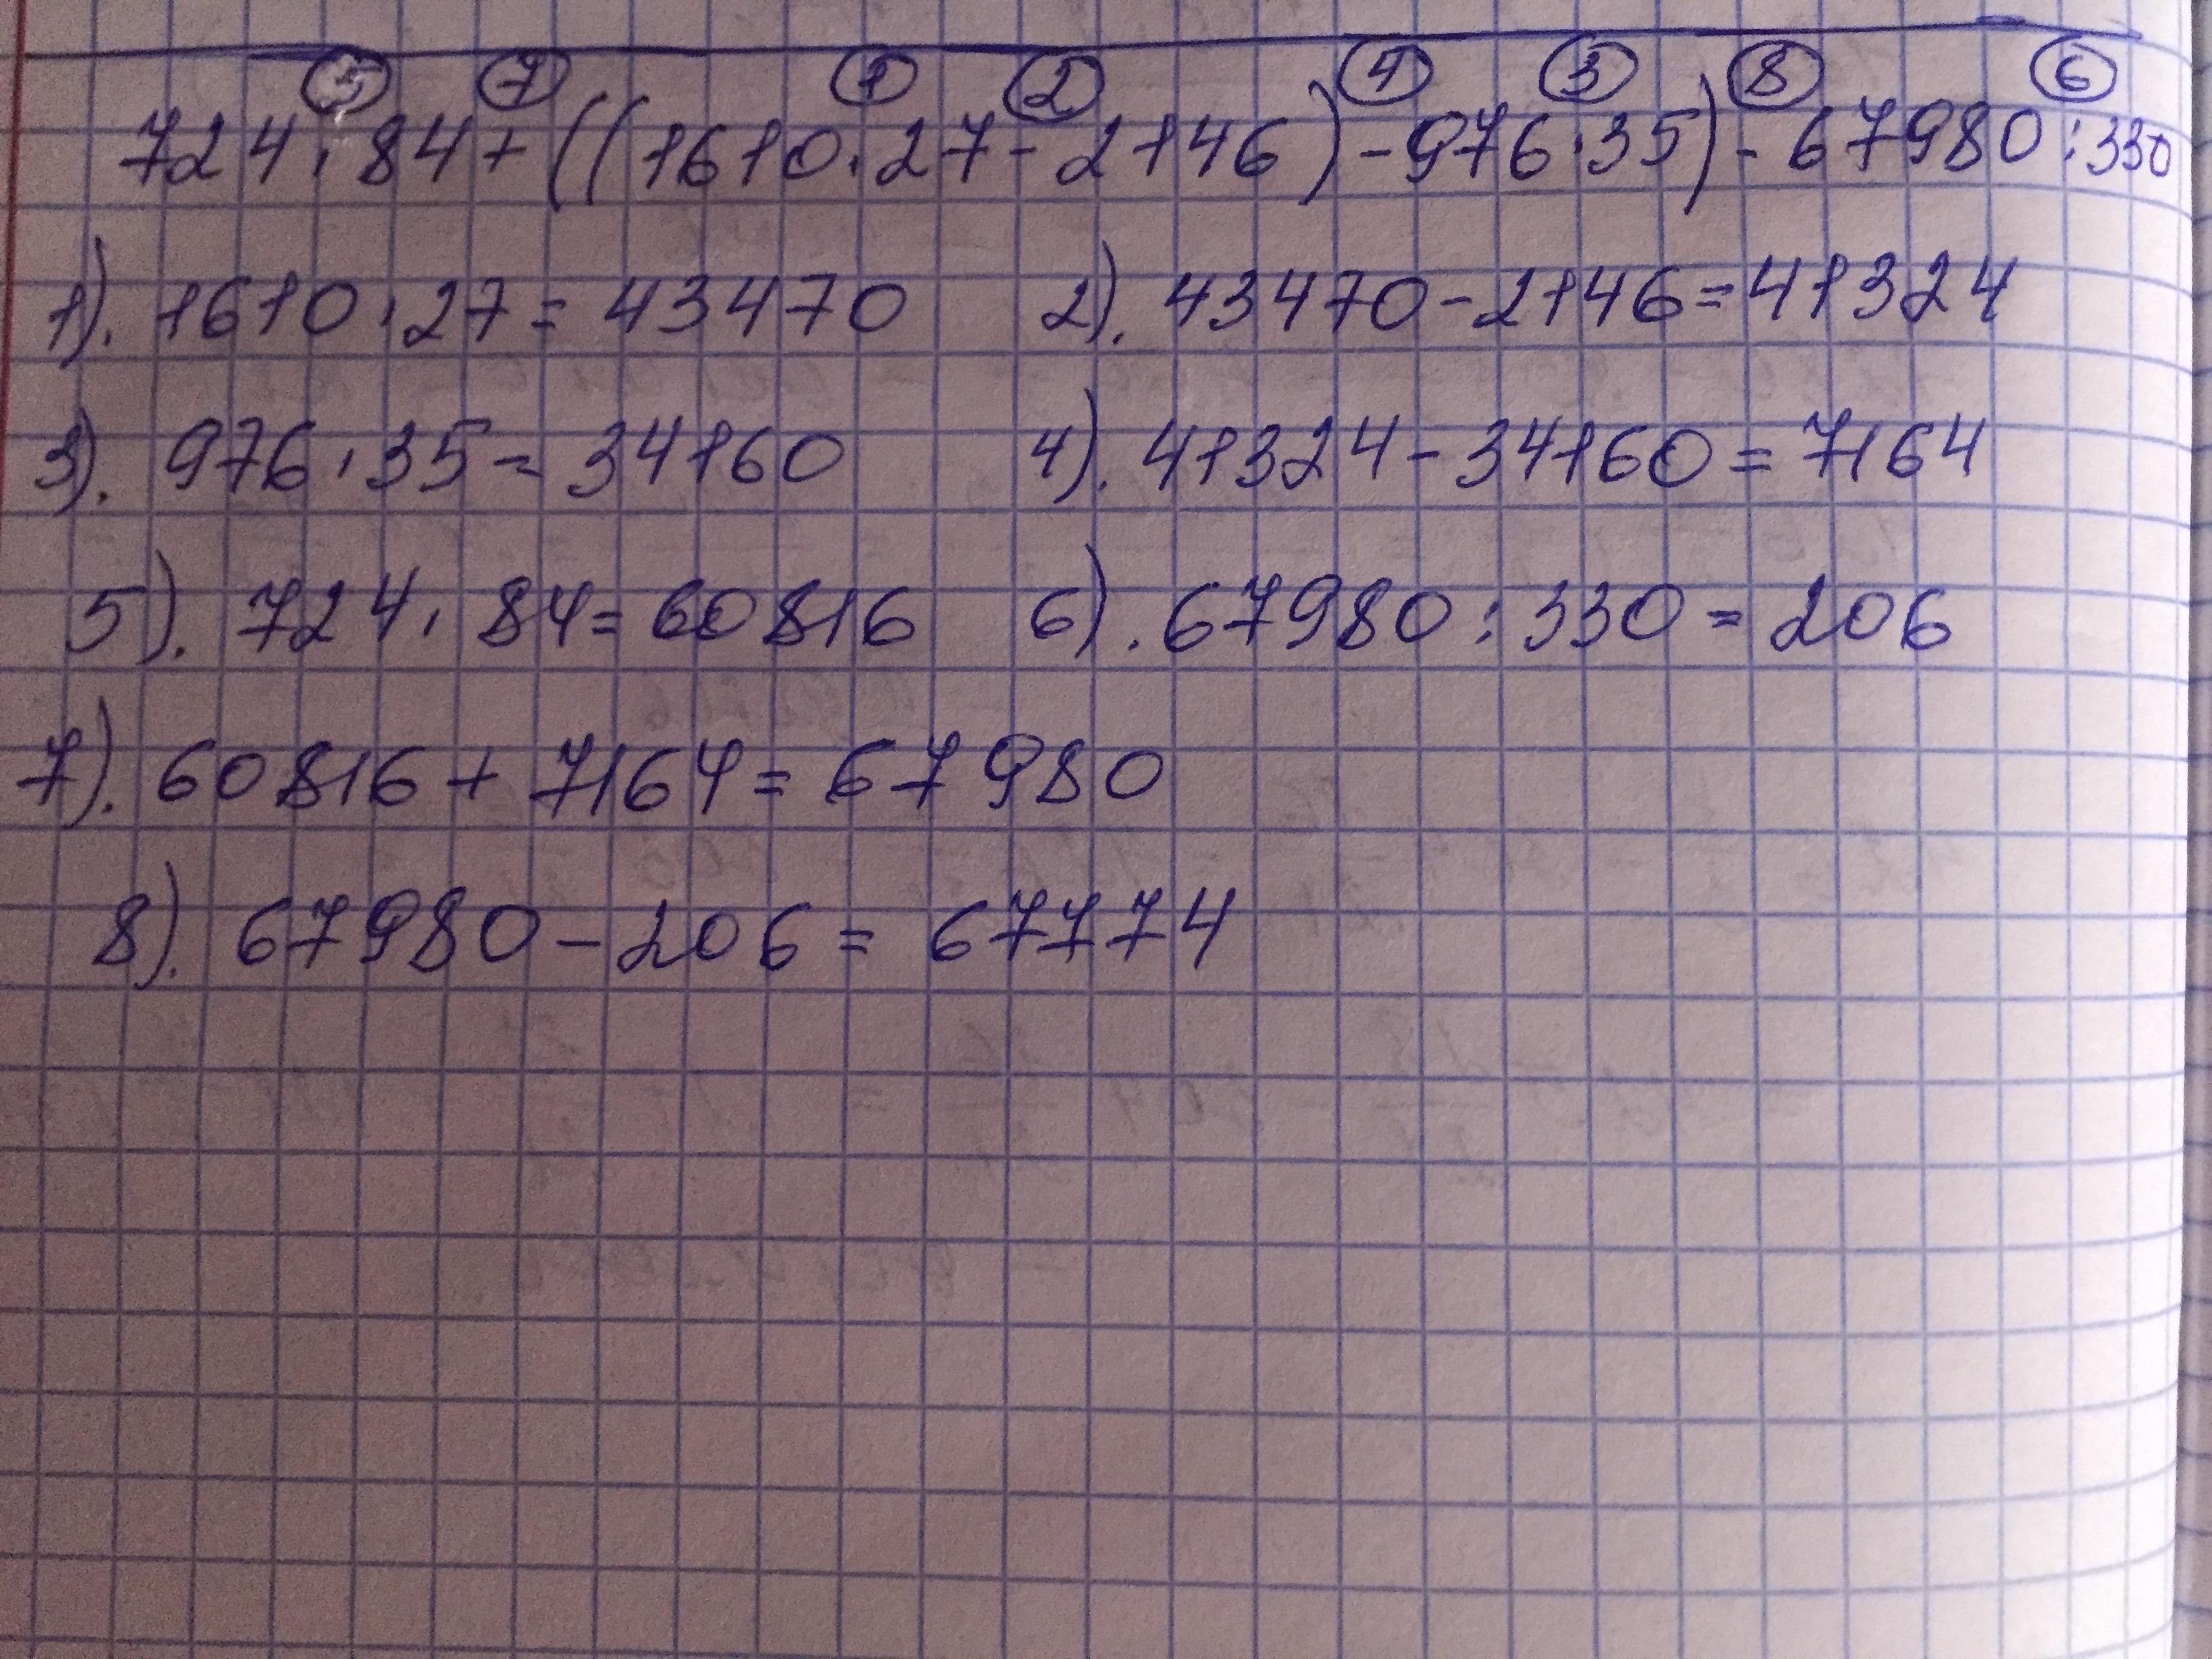 5 7 1 2 4 3 8 6
724 · 84 + ((1610 · 27 - 2146) - 976 · 35) - 67980 : 330
1). 1610 · 27 = 43470 2). 43470 - 2146 = 41324
3). 976 · 35 = 34160 4). 41324 - 34160 = 7164
5). 724 · 84 = 60816 6). 67980 : 330 = 206
7). 60816 + 7164 = 67980
8). 67980 - 206 = 67774